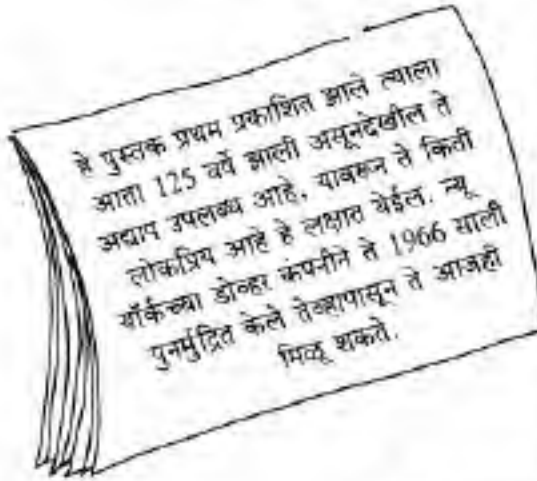 हे पुस्तक प्रथम प्रकाशित झाले त्याला
आता 125 वर्षे झाली असूनदेखील ते
अद्याप उपलब्ध आहे, यावरून ते किती
लोकप्रिय आहे हे लक्षात येईल. न्यू
यॉर्कच्या डोव्हर कंपनीने ते 1966 साली
पुनर्मुद्रित केले तेव्हापासून ते आजही
मिळू शकते.